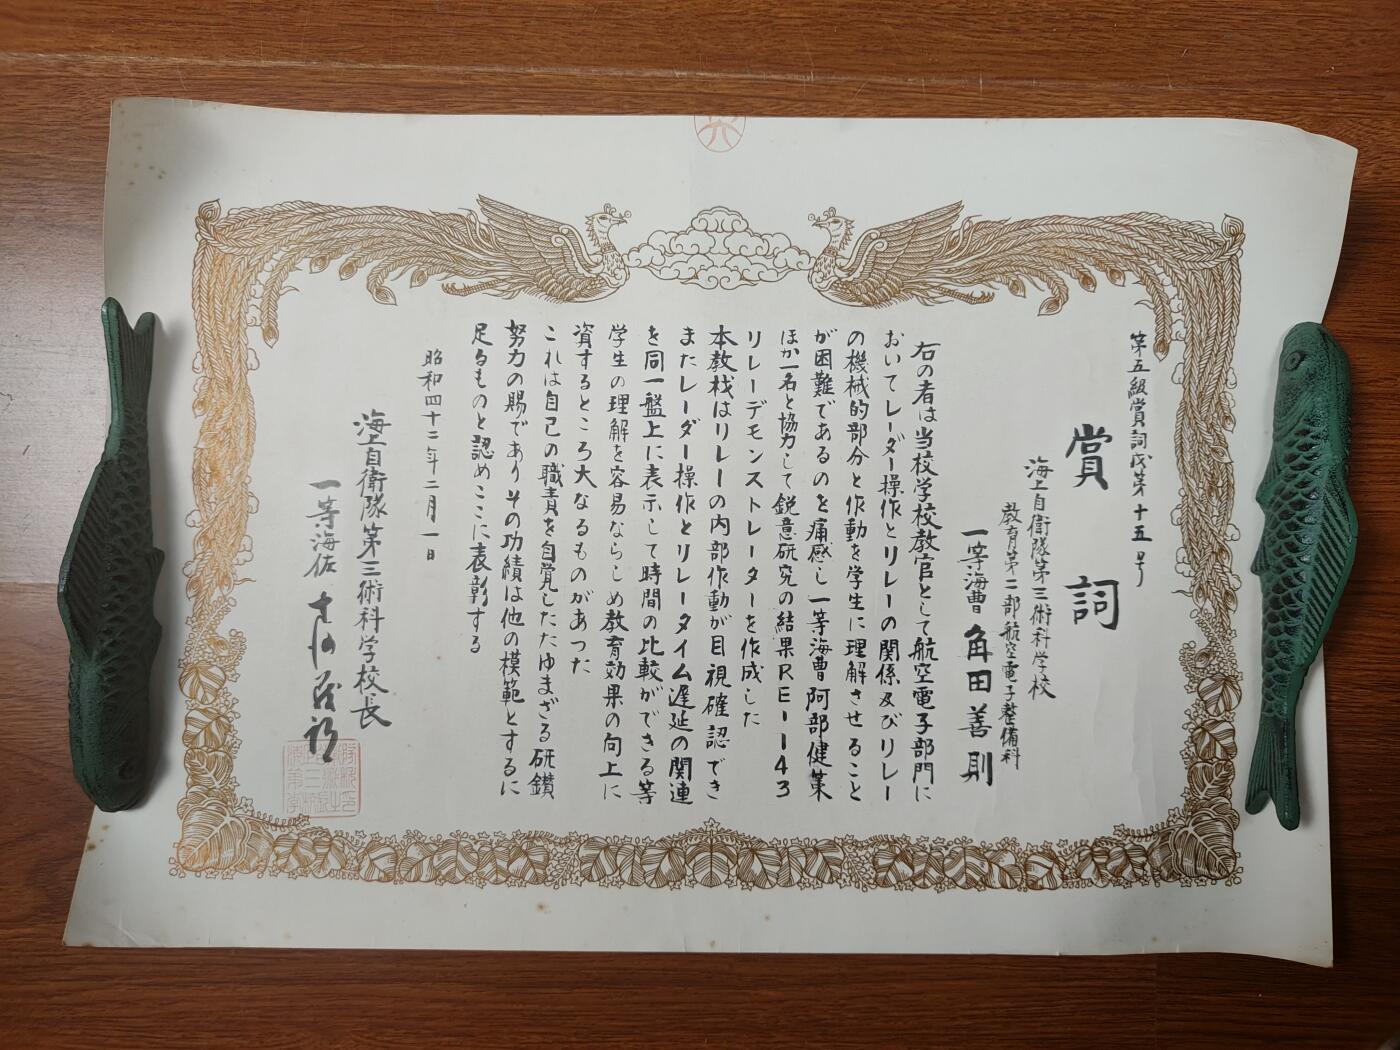 第五級賞詞成第十五号
賞詞
海上自衛隊第三術科学校
教育第二部航空電子整備科
一等海曹 角田善則
右の者は当校学校教官として航空電子部門に
おいてレーダー操作とリレーの関係及びリレー
の機械的部分と作動を学生に理解させること
が困難であるのを痛感し一等海曹阿部健策
ほか一名と協力して鋭意研究の結果REー143
リレーデモンストレーターを作成した
本教材はリレーの内部作動が目視確認でき
またレーダー操作とリレータイム遅延の関連
を同一盤上に表示して時間の比較ができる等
学生の理解を容易ならしめ教育効果の向上に
資するところ大なるものがあつた
これは自己の職責を自覚したたゆまざる研鑽
努力の賜でありその功績は他の模範とするに
足るものと認めここに表彰する
昭和四十二年二月一日
海上自衛隊第三術科学校長
一等海佐